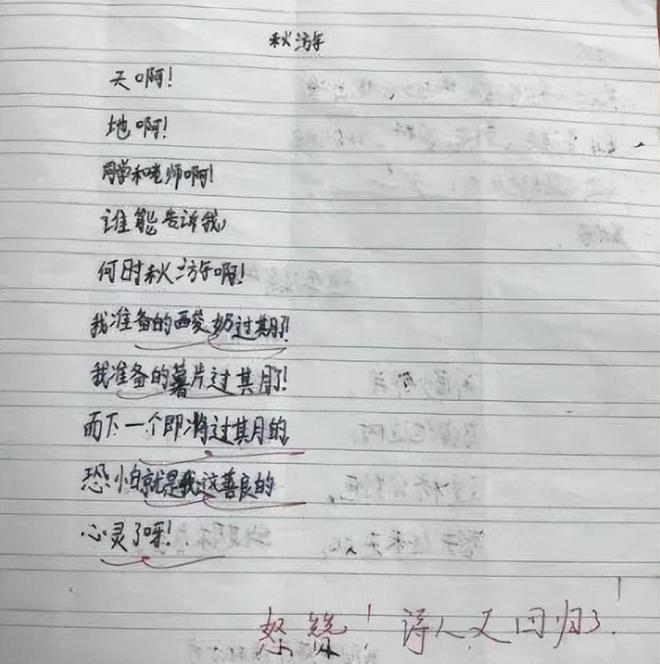 秋游
天啊！
地啊！
同学和老师啊！
谁能告诉我
何时秋游啊！
我准备的酸奶过期了！
我准备的薯片过期了！
而下一个即将过期的
恐怕就是我这善良的
心灵了呀！
怒赞！诗人又回归了